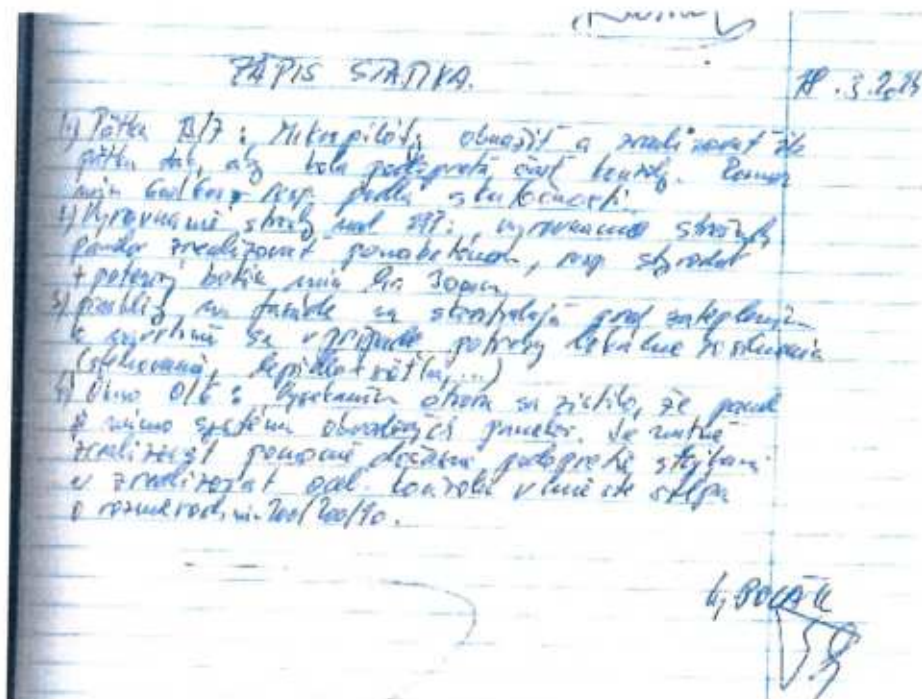 ZÁPIS STATIKA.
18.3.2024
1) Pätka B/7: Mikropilóty obnažiť a zrealizovať žb
pätku tak, aby bola podopretá časť konzoly. Rozmer
min resp. podľa skutočnosti.
2) Vyrovnanie strechy nad : vyrovnanie strechy
zrealizovať penobetónom, resp. styrodur
+ poterový betón min hr. 30mm.
3) na fasáde sa skontrolujú pred zateplením
a sa v prípade potreby lokálne zosilnenia
(stehovanie, lepidlo + sieťka, ...)
4) Okno O/6: Vysekaním otvoru sa zistilo, že panel
je mimo systému obvodových panelov. Je nutné
zrealizovať pomocné dočasné podopretie stojkami
a zrealizovať oceľ. konzolu v mieste stĺpa
o rozmeroch min. 200/200/10.